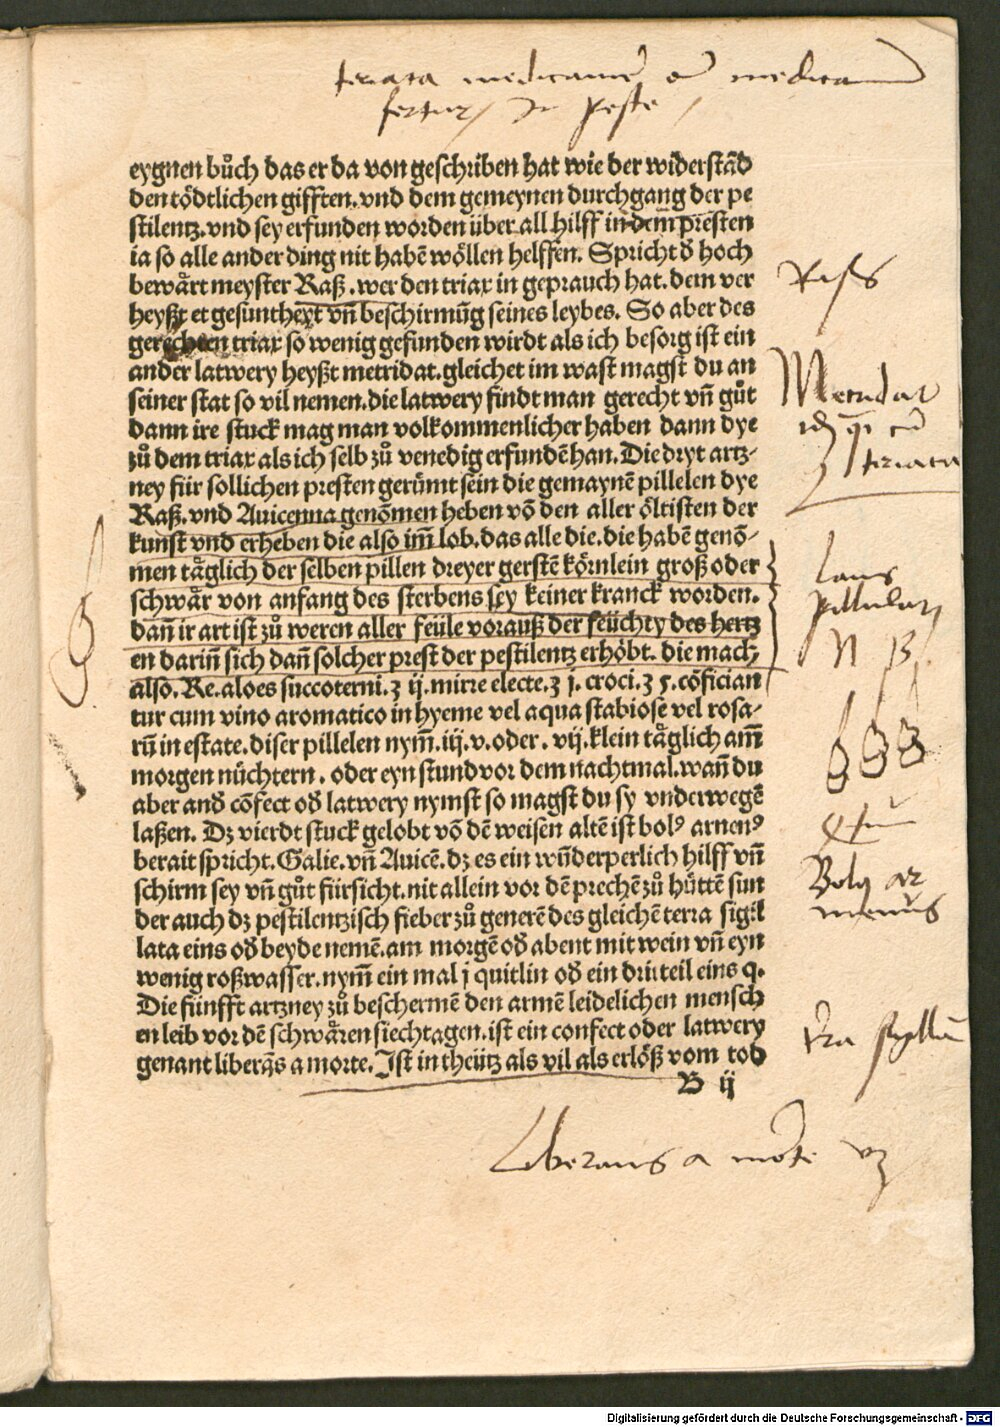 teriaca medicamen̄
fertur in peste
eygnen bůch das er da von geschriben hat wie der widerstād
den tödtlichen gifften. vnd dem gemeynen durchgang der pe
stilentz. vnd sey erfunden worden über all hilff in dem presten
ia so alle ander ding nit habē wöllen helffen. Spricht d̄ hoch
bewärt meyster Raß. wer den triax in geprauch hat. dem ver
heyßt et gesuntheyt vn̄ beschirmūg seines leybes. So aber des
gerechten triax so wenig gefunden wirdt als ich besorg ist ein
ander latwery heyßt metridat. gleichet im wast magst du an
seiner stat so vil nemen. die latwery findt man gerecht vn̄ gůt
dann ire stuck mag man volkommenlicher haben dann dye
zů dem triax als ich selb zů venedig erfundē han. Die dryt artz-
ney für sollichen presten gerümt sein die gemaynē pillelen dye
Raß. vnd Auicenna genōmen heben vō den aller öltisten der
kunst vnd erheben die also im̄ lob. das alle die. die habē genō-
men täglich der selben pillen dreyer gerstē körnlein groß oder
schwär von anfang des sterbens sey keiner kranck worden.
dan̄ ir art ist zů weren aller feüle vorauß der feüchty des hertz
en darin̄ sich dan̄ solcher prest der pestilentz erhöbt. die mach
also. Re. aloes succoterni. ʒ ij. mirre electe. ʒ j. croci. ʒ ꝭ. cōfician
tur cum vino aromatico in hyeme vel aqua stabiose vel rosa-
rū in estate. diser pillelen nym̄. iij. v. oder. vij. klein täglich am̄
morgen nüchtern. oder eyn stund vor dem nachtmal. wan̄ du
aber and̄ cōfect od̄ latwery nymst so magst du sy vnderwegē
laßen. Dz vierdt stuck gelobt vō dē weisen altē ist bolꝰ arnenꝰ
berait spricht. Galie. vn̄ Auicē. dz es ein wn̄derperlich hilff vn̄
schirm sey vn̄ gůt fürsicht. nit allein vor dē prechē zů hüttē sun
der auch dz pestilentzisch fieber zů generē des gleichē terra sigil
lata eins od̄ beyde nemē. am morgē od̄ abent mit wein vn̄ eyn
wenig roßwasser. nym̄ ein mal j quitlin od̄ ein driteil eins q.
Die fünfft artzney zů beschermē den armē leidelichen mensch
en leib vor dē schwären siechtagen. ist ein confect oder latwery
genant liberās a morte. Ist in theütz als vil als erlöß vom tod
B ij
Rasis
Metridat
teriaca
Laus
pillular
N B
Bolꝰ ar
menus
terra sigilla
Liberans a morte
Digitalisierung gefördert durch die Deutsche Forschungsgemeinschaft - DFG